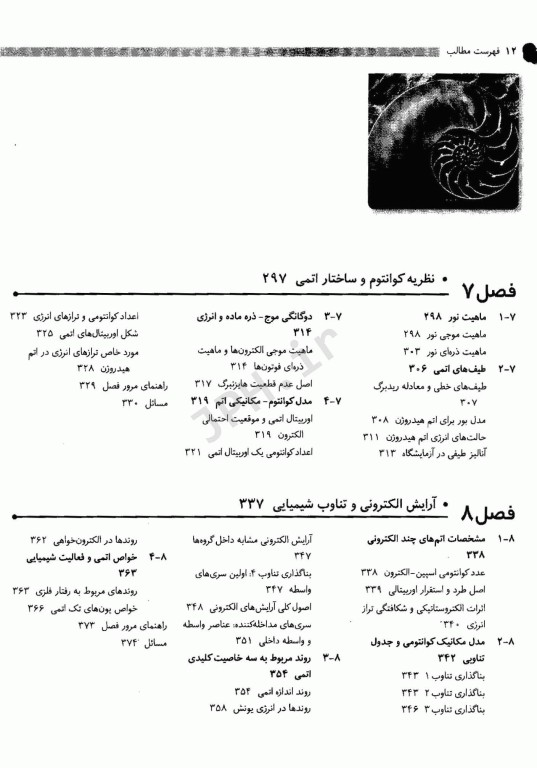 ۱۲ فهرست مطالب
فصل ۷
• نظریه کوانتوم و ساختار اتمی ۲۹۷
۷-۱ ماهیت نور ۲۹۸
ماهیت موجی نور ۲۹۸
ماهیت ذره‌ای نور ۳۰۳
۷-۲ طیف‌های اتمی ۳۰۶
طیف‌های خطی و معادله ریدبرگ
۳۰۷
مدل بور برای اتم هیدروژن ۳۰۸
حالت‌های انرژی اتم هیدروژن ۳۱۱
آنالیز طیفی در آزمایشگاه ۳۱۳
۷-۳ دوگانگی موج- ذره ماده و انرژی
۳۱۴
ماهیت موجی الکترون‌ها و ماهیت
ذره‌ای فوتون‌ها ۳۱۴
اصل عدم قطعیت هایزنبرگ ۳۱۷
۷-۴ مدل کوانتوم- مکانیکی اتم ۳۱۹
اوربیتال اتمی و موقعیت احتمالی
الکترون ۳۱۹
اعداد کوانتومی یک اوربیتال اتمی ۳۲۱
اعداد کوانتومی و ترازهای انرژی ۳۲۳
شکل اوربیتال‌های اتمی ۳۲۵
مورد خاص ترازهای انرژی در اتم
هیدروژن ۳۲۸
راهنمای مرور فصل ۳۲۹
مسائل ۳۳۰
فصل ۸
• آرایش الکترونی و تناوب شیمیایی ۳۳۷
۸-۱ مشخصات اتم‌های چند الکترونی
۳۳۸
عدد کوانتومی اسپین-الکترون ۳۳۸
اصل طرد و استقرار اوربیتالی ۳۳۹
اثرات الکتروستاتیکی و شکافتگی تراز
انرژی ۳۴۰
۸-۲ مدل مکانیک کوانتومی و جدول
تناوبی ۳۴۲
بناگذاری تناوب ۱ ۳۴۳
بناگذاری تناوب ۲ ۳۴۳
بناگذاری تناوب ۳ ۳۴۶
آرایش الکترونی مشابه داخل گروه‌ها
۳۴۷
بناگذاری تناوب ۴: اولین سری‌های
واسطه ۳۴۷
اصول کلی آرایش‌های الکترونی ۳۴۸
سری‌های مداخله‌کننده: عناصر واسطه
و واسطه داخلی ۳۵۱
۸-۳ روند مربوط به سه خاصیت کلیدی
اتمی ۳۵۴
روند اندازه اتمی ۳۵۴
روندها در انرژی یونش ۳۵۸
روندها در الکترون‌خواهی ۳۶۲
۸-۴ خواص اتمی و فعالیت شیمیایی
۳۶۳
روندهای مربوط به رفتار فلزی ۳۶۳
خواص یون‌های تک اتمی ۳۶۶
راهنمای مرور فصل ۳۷۳
مسائل ۳۷۴